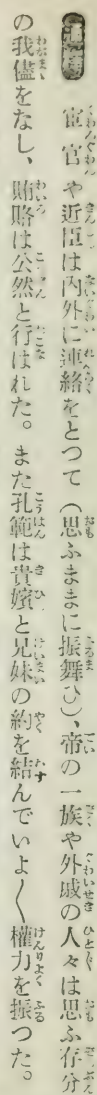 通釋
宦官や近臣は內外に連絡をとつて（思ふままに振舞ひ）、帝の一族や外戚の人々は思ふ存分
の我儘をなし、賄賂は公然と行はれた。また孔範は貴嬪と兄妹の約を結んでいよ〱權力を振つた。